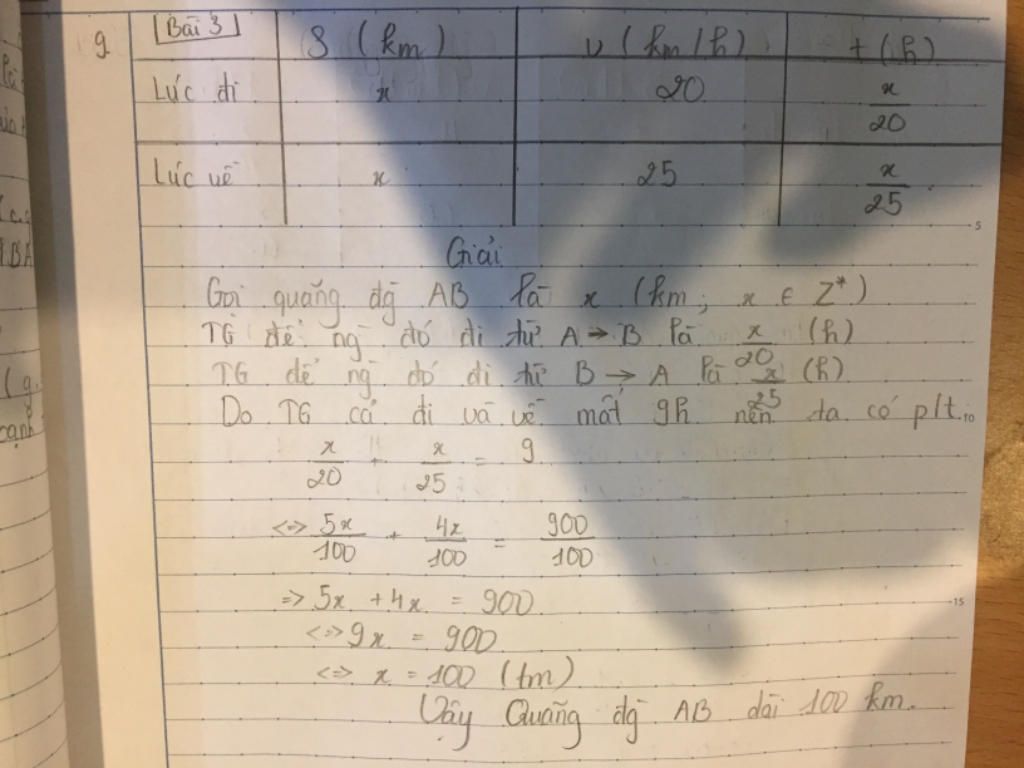 9
Bài 3 S (km) v (km/h) t (h)
Lúc đi x 20 x/20
Lúc về x 25 x/25
Giải
Gọi quãng đg AB là x (km; x ∈ Z*)
TG để ng đó đi từ A → B là x/20 (h)
TG để ng đó đi từ B → A là x/25 (h)
Do TG cả đi và về mất 9h nên ta có p/t.
x/20 + x/25 = 9
<=> 5x/100 + 4x/100 = 900/100
=> 5x + 4x = 900
<=> 9x = 900
<=> x = 100 (tm)
Vậy Quãng đg AB dài 100 km.
5
10
15